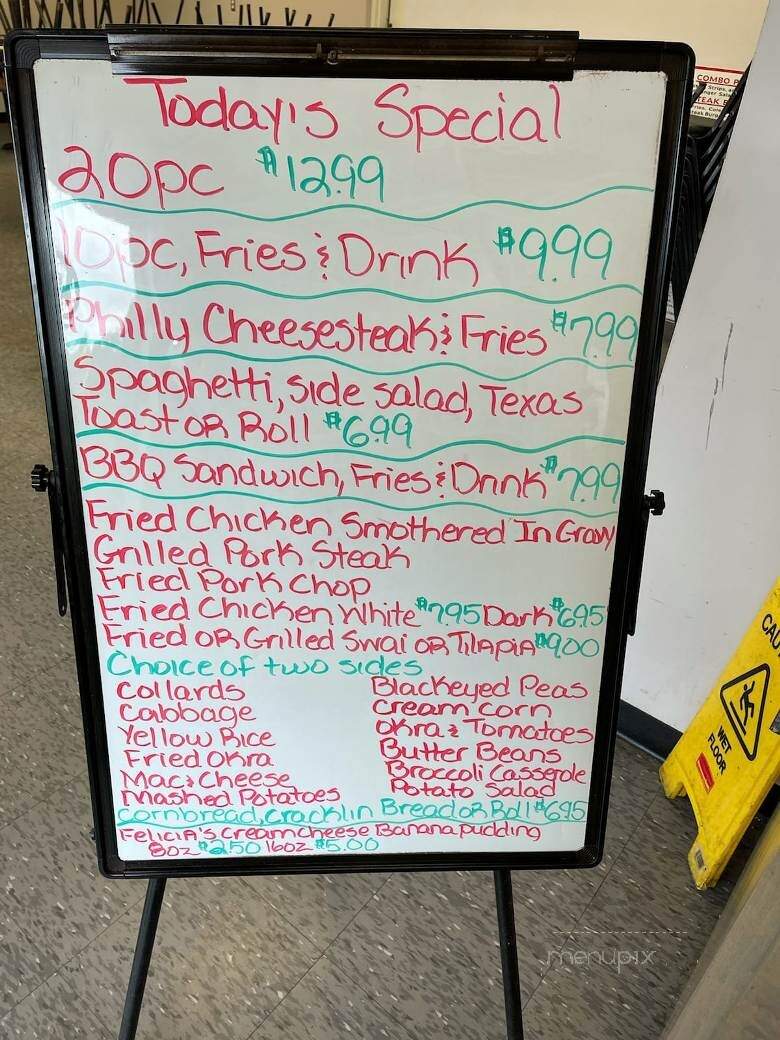 Today's Special
20pc $12.99
10pc, Fries & Drink $9.99
Philly Cheesesteak & Fries $7.99
Spaghetti, side salad, Texas
Toast OR Roll $6.99
BBQ Sandwich, Fries & Drink $7.99
Fried Chicken Smothered In Gravy
Grilled Pork Steak
Fried Pork Chop
Fried Chicken White $7.95 Dark $6.95
Fried OR Grilled Swai OR Tilapia $9.00
Choice of two sides
Collards
Cabbage
Yellow Rice
Fried Okra
Mac & Cheese
Mashed Potatoes
Blackeyed Peas
Cream Corn
Okra & Tomatoes
Butter Beans
Broccoli Casserole
Potato Salad
Cornbread, Cracklin Bread OR Roll $6.95
Felicia's Creamcheese Banana pudding
8oz $2.50 16oz $5.00
COMBO P
Strips,
TEAK
CAU
WET
FLOOR
menupix